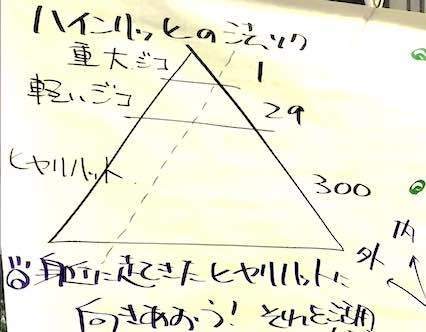 ハインリッヒの法則
重大ジコ 1
軽いジコ 29
ヒヤリハット 300
内
外
身近に起きてきたヒヤリハットに
向きあおう! それを活用